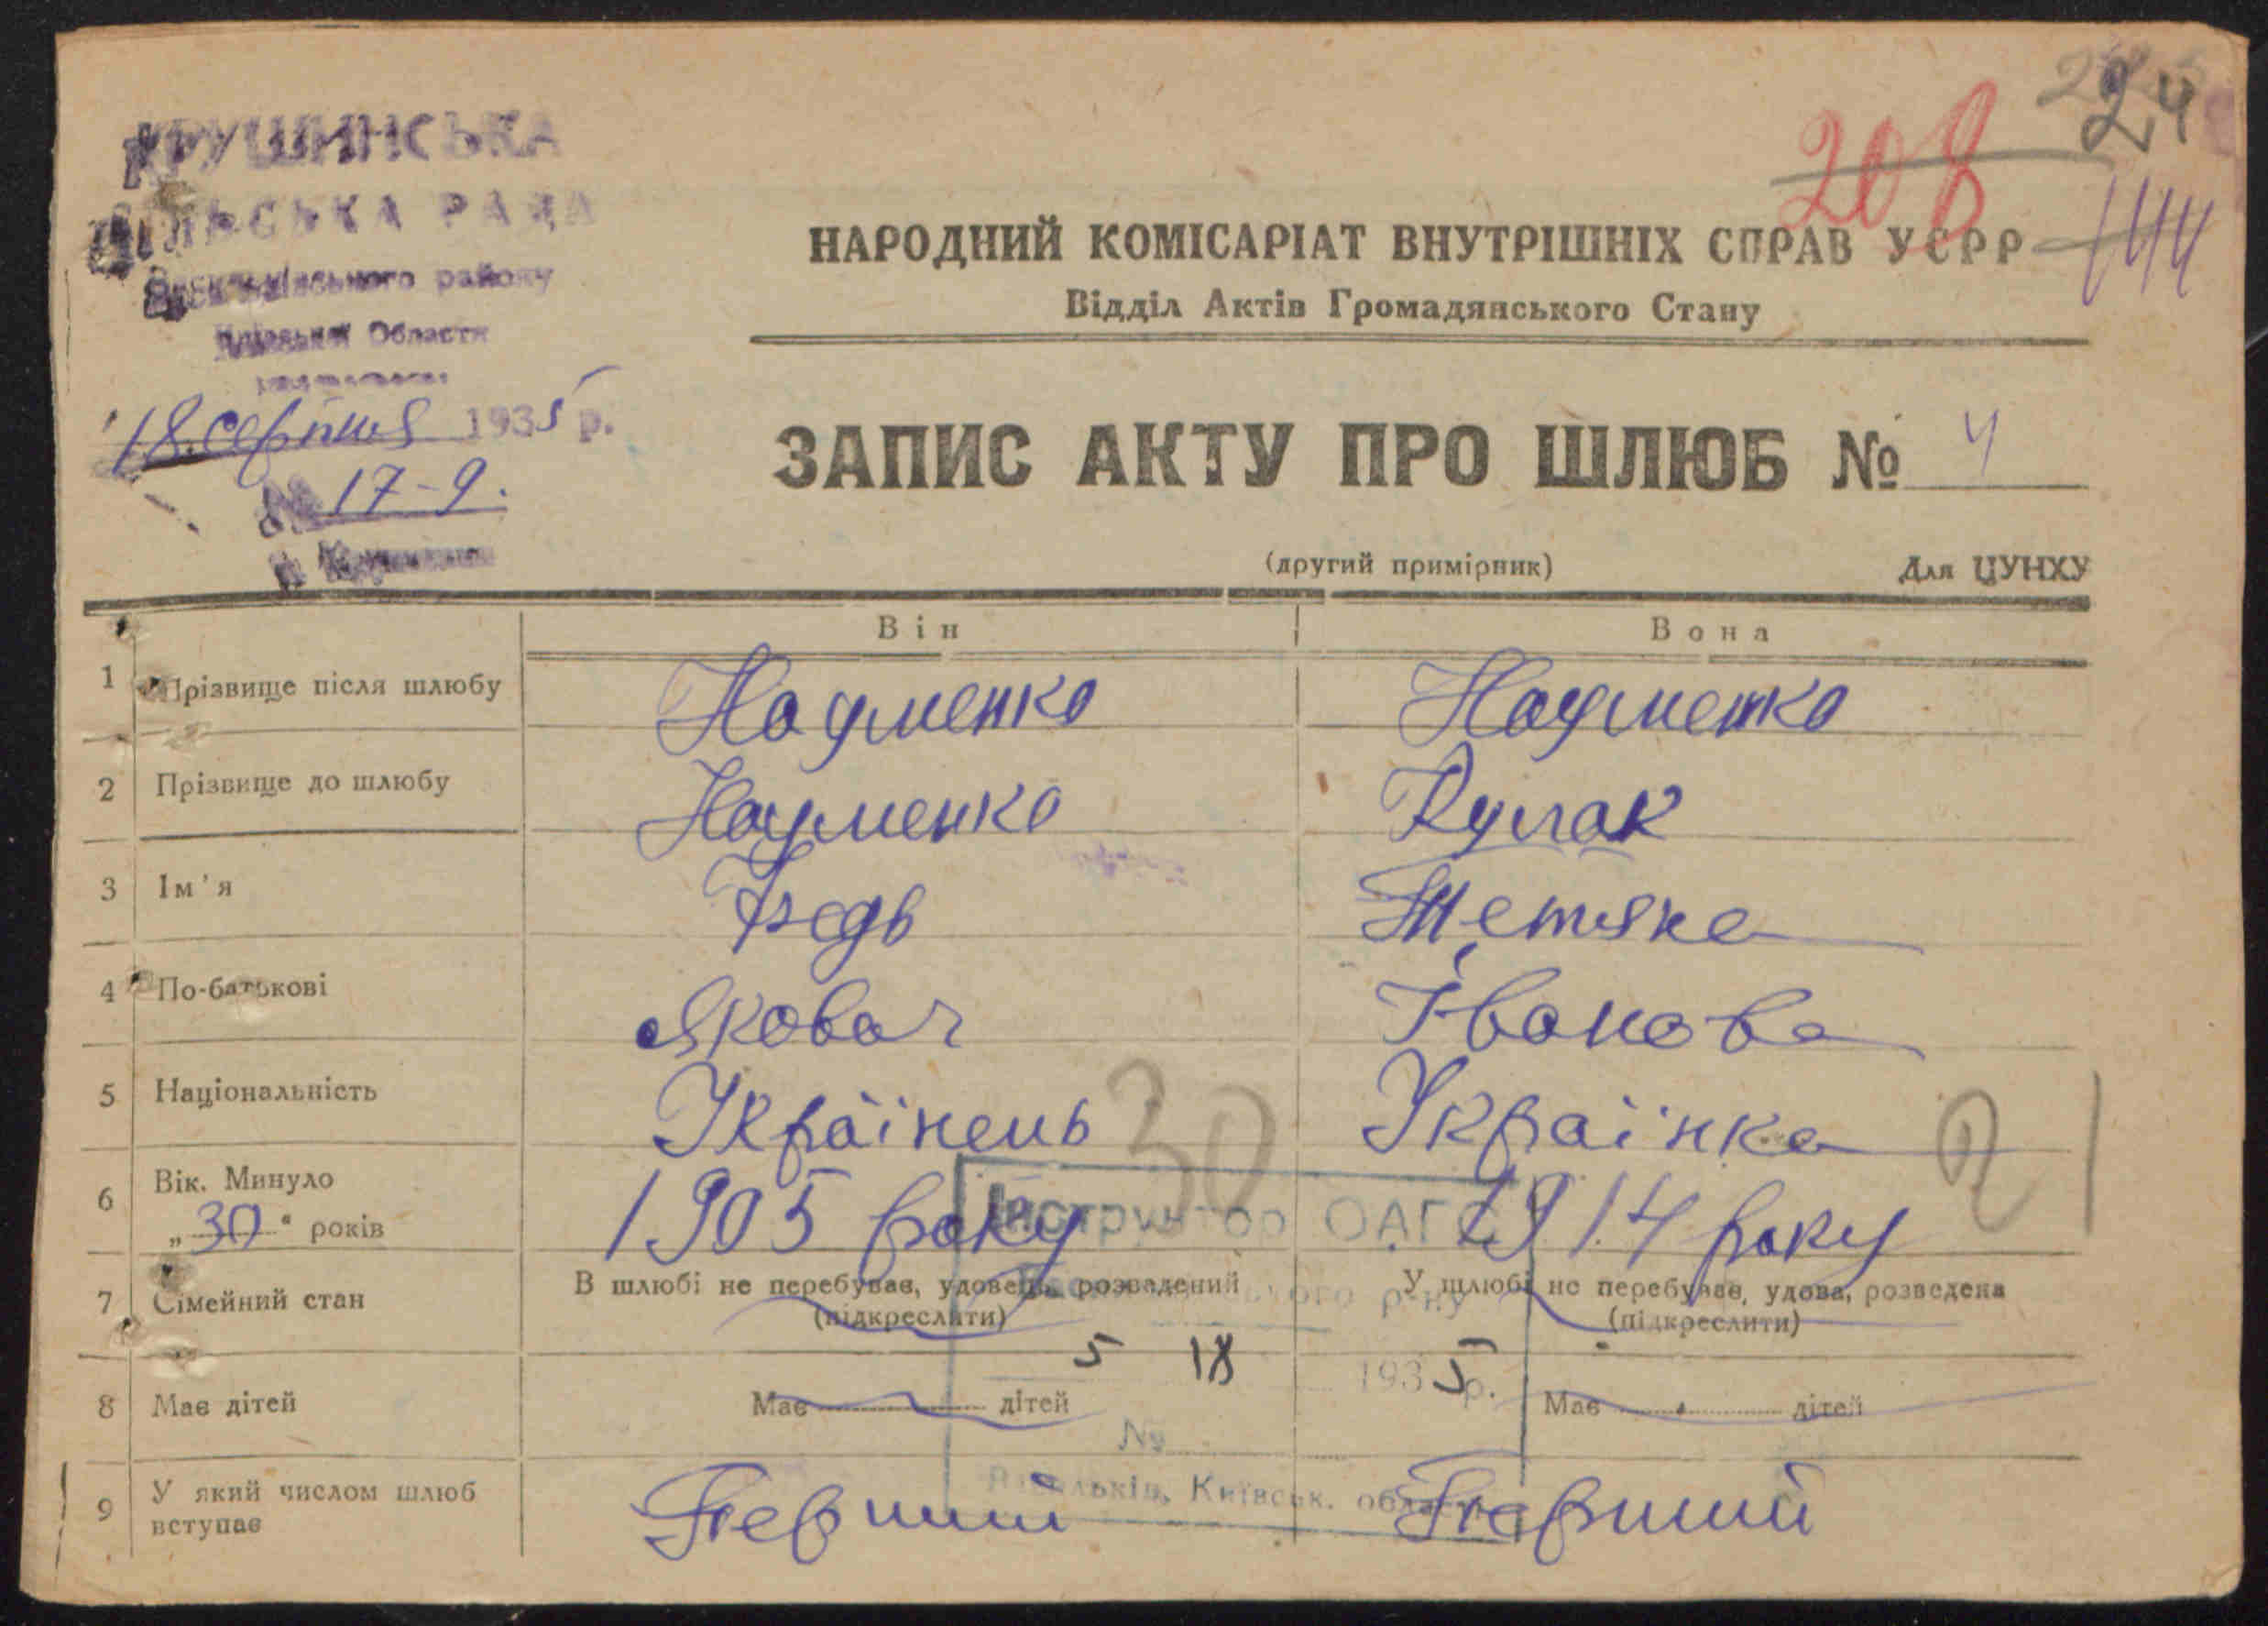 КРУШИНСЬКА
СІЛЬСЬКА РАДА
району
Області
18. серпня 1935 р.
№ 17-9.
24
208
144
НАРОДНИЙ КОМІСАРІАТ ВНУТРІШНІХ СПРАВ УСРР
Відділ Актів Громадянського Стану
ЗАПИС АКТУ ПРО ШЛЮБ № 4
(другий примірник) Для ЦУНХУ
Він Вона
1 Прізвище після шлюбу Науменко Науменко
2 Прізвище до шлюбу Науменко Кулак
3 Ім'я Федь Тетяна
4 По-батькові Яковач Іванова
5 Національність Українець Українка
30 21
6 Вік. Минуло „30“ років 1905 року 1914 року
Інструктор ОАГС
7 Сімейний стан В шлюбі не перебував, удовець, розведений (підкреслити) У шлюбі не перебував, удова, розведена (підкреслити)
5 18 1935 р.
8 Має дітей Має дітей Має дітей
№
Київськ. обл.
9 У який числом шлюб вступає Перший Перший